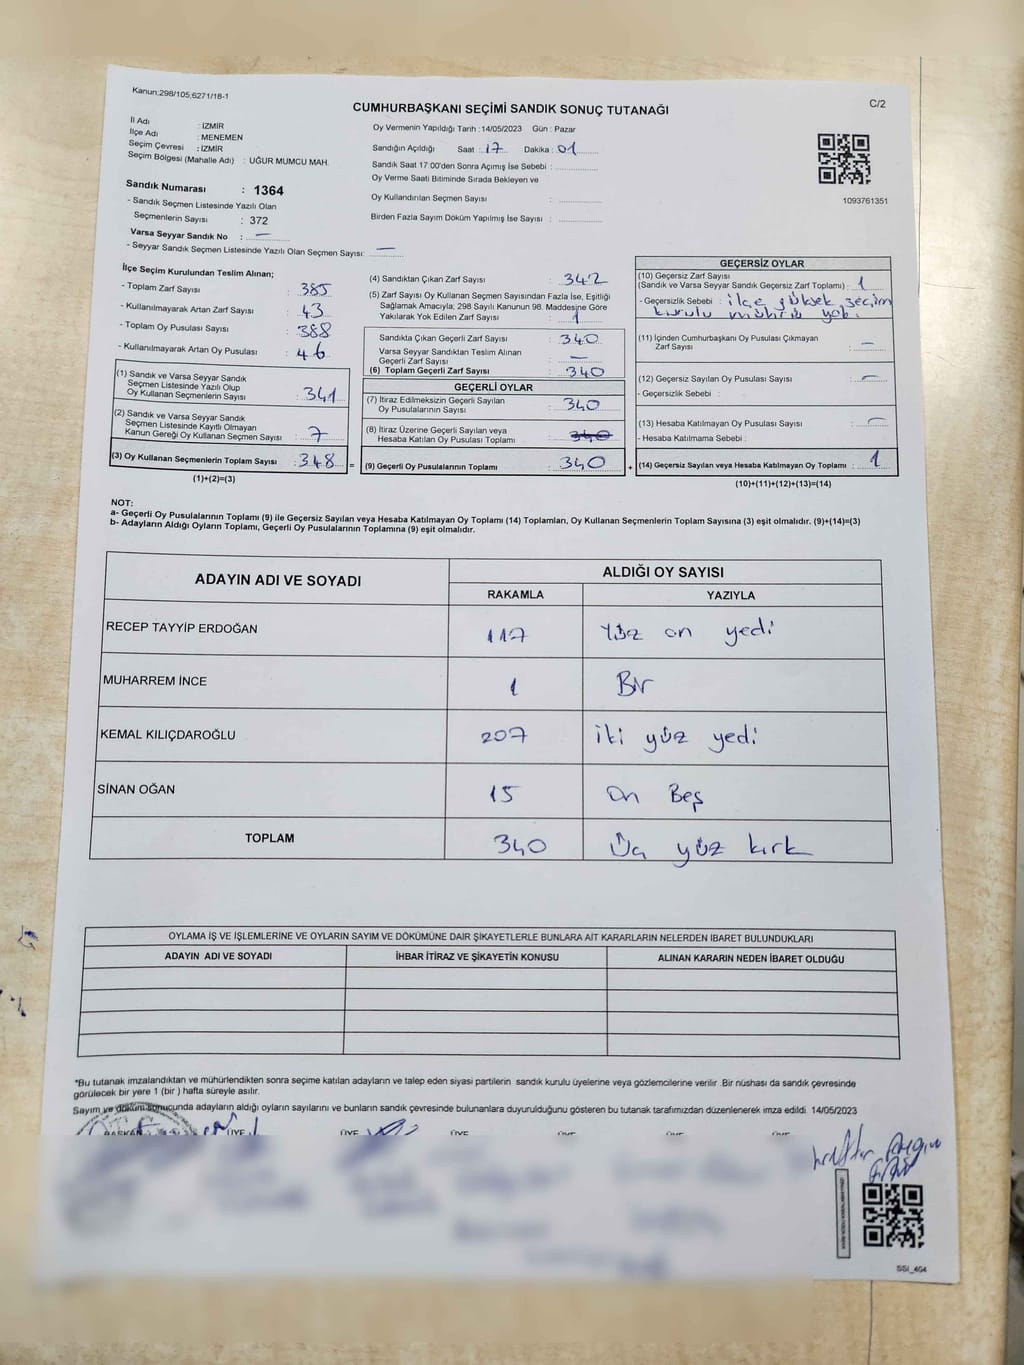 Kanun:298/105;6271/18-1
CUMHURBAŞKANI SEÇİMİ SANDIK SONUÇ TUTANAĞI
C/2
İl Adı : İZMİR
İlçe Adı : MENEMEN
Seçim Çevresi : İZMİR
Seçim Bölgesi (Mahalle Adı) : UĞUR MUMCU MAH.
Sandık Numarası : 1364
- Sandık Seçmen Listesinde Yazılı Olan
Seçmenlerin Sayısı : 372
Varsa Seyyar Sandık No : —
- Seyyar Sandık Seçmen Listesinde Yazılı Olan Seçmen Sayısı: —
Oy Vermenin Yapıldığı Tarih :14/05/2023 Gün : Pazar
Sandığın Açıldığı Saat : 17 Dakika : 01
Sandık Saat 17:00'den Sonra Açımış İse Sebebi :
Oy Verme Saati Bitiminde Sırada Bekleyen ve
Oy Kullandırılan Seçmen Sayısı :
Birden Fazla Sayım Döküm Yapılmış İse Sayısı :
1093761351
İlçe Seçim Kurulundan Teslim Alınan;
- Toplam Zarf Sayısı : 385
- Kullanılmayarak Artan Zarf Sayısı : 43
- Toplam Oy Pusulası Sayısı : 388
- Kullanılmayarak Artan Oy Pusulası : 46
(1) Sandık ve Varsa Seyyar Sandık
Seçmen Listesinde Yazılı Olup
Oy Kullanan Seçmenlerin Sayısı : 341
(2) Sandık ve Varsa Seyyar Sandık
Seçmen Listesinde Kayıtlı Olmayan
Kanun Gereği Oy Kullanan Seçmen Sayısı : 7
(3) Oy Kullanan Seçmenlerin Toplam Sayısı : 348 =
(1)+(2)=(3)
(4) Sandıktan Çıkan Zarf Sayısı : 342
(5) Zarf Sayısı Oy Kullanan Seçmen Sayısından Fazla İse, Eşitliği
Sağlamak Amacıyla; 298 Sayılı Kanunun 98. Maddesine Göre
Yakılarak Yok Edilen Zarf Sayısı : 1
Sandıkta Çıkan Geçerli Zarf Sayısı : 340
Varsa Seyyar Sandıktan Teslim Alınan
Geçerli Zarf Sayısı : —
(6) Toplam Geçerli Zarf Sayısı : 340
GEÇERLİ OYLAR
(7) İtiraz Edilmeksizin Geçerli Sayılan
Oy Pusulalarının Sayısı : 340
(8) İtiraz Üzerine Geçerli Sayılan veya
Hesaba Katılan Oy Pusulası Toplamı : 340
(9) Geçerli Oy Pusulalarının Toplamı : 340 +
GEÇERSİZ OYLAR
(10) Geçersiz Zarf Sayısı
(Sandık ve Varsa Seyyar Sandık Geçersiz Zarf Toplamı) : 1
- Geçersizlik Sebebi : ilçe yüksek seçim
kurulu mührü yok.
(11) İçinden Cumhurbaşkanı Oy Pusulası Çıkmayan
Zarf Sayısı : —
(12) Geçersiz Sayılan Oy Pusulası Sayısı : —
- Geçersizlik Sebebi :
(13) Hesaba Katılmayan Oy Pusulası Sayısı : —
- Hesaba Katılmama Sebebi :
(14) Geçersiz Sayılan veya Hesaba Katılmayan Oy Toplamı : 1
(10)+(11)+(12)+(13)=(14)
NOT:
a- Geçerli Oy Pusulalarının Toplamı (9) ile Geçersiz Sayılan veya Hesaba Katılmayan Oy Toplamı (14) Toplamları, Oy Kullanan Seçmenlerin Toplam Sayısına (3) eşit olmalıdır. (9)+(14)=(3)
b- Adayların Aldığı Oyların Toplamı, Geçerli Oy Pusulalarının Toplamına (9) eşit olmalıdır.
ADAYIN ADI VE SOYADI ALDIĞI OY SAYISI
RAKAMLA YAZIYLA
RECEP TAYYİP ERDOĞAN 117 Yüz on yedi
MUHARREM İNCE 1 Bir
KEMAL KILIÇDAROĞLU 207 iki yüz yedi
SİNAN OĞAN 15 On Beş
TOPLAM 340 Üç yüz kırk
OYLAMA İŞ VE İŞLEMLERİNE VE OYLARIN SAYIM VE DÖKÜMÜNE DAİR ŞİKAYETLERLE BUNLARA AİT KARARLARIN NELERDEN İBARET BULUNDUKLARI
ADAYIN ADI VE SOYADI İHBAR İTİRAZ VE ŞİKAYETİN KONUSU ALINAN KARARIN NEDEN İBARET OLDUĞU
*Bu tutanak imzalandıktan ve mühürlendikten sonra seçime katılan adayların ve talep eden siyasi partilerin sandık kurulu üyelerine veya gözlemcilerine verilir .Bir nüshası da sandık çevresinde
görülecek bir yere 1 (bir ) hafta süreyle asılır.
Sayım ve döküm sonucunda adayların aldığı oyların sayılarını ve bunların sandık çevresinde bulunanlara duyurulduğunu gösteren bu tutanak tarafımızdan düzenlenerek imza edildi. 14/05/2023
BAŞKAN ÜYE ÜYE ÜYE ÜYE ÜYE ÜYE
SSI_404